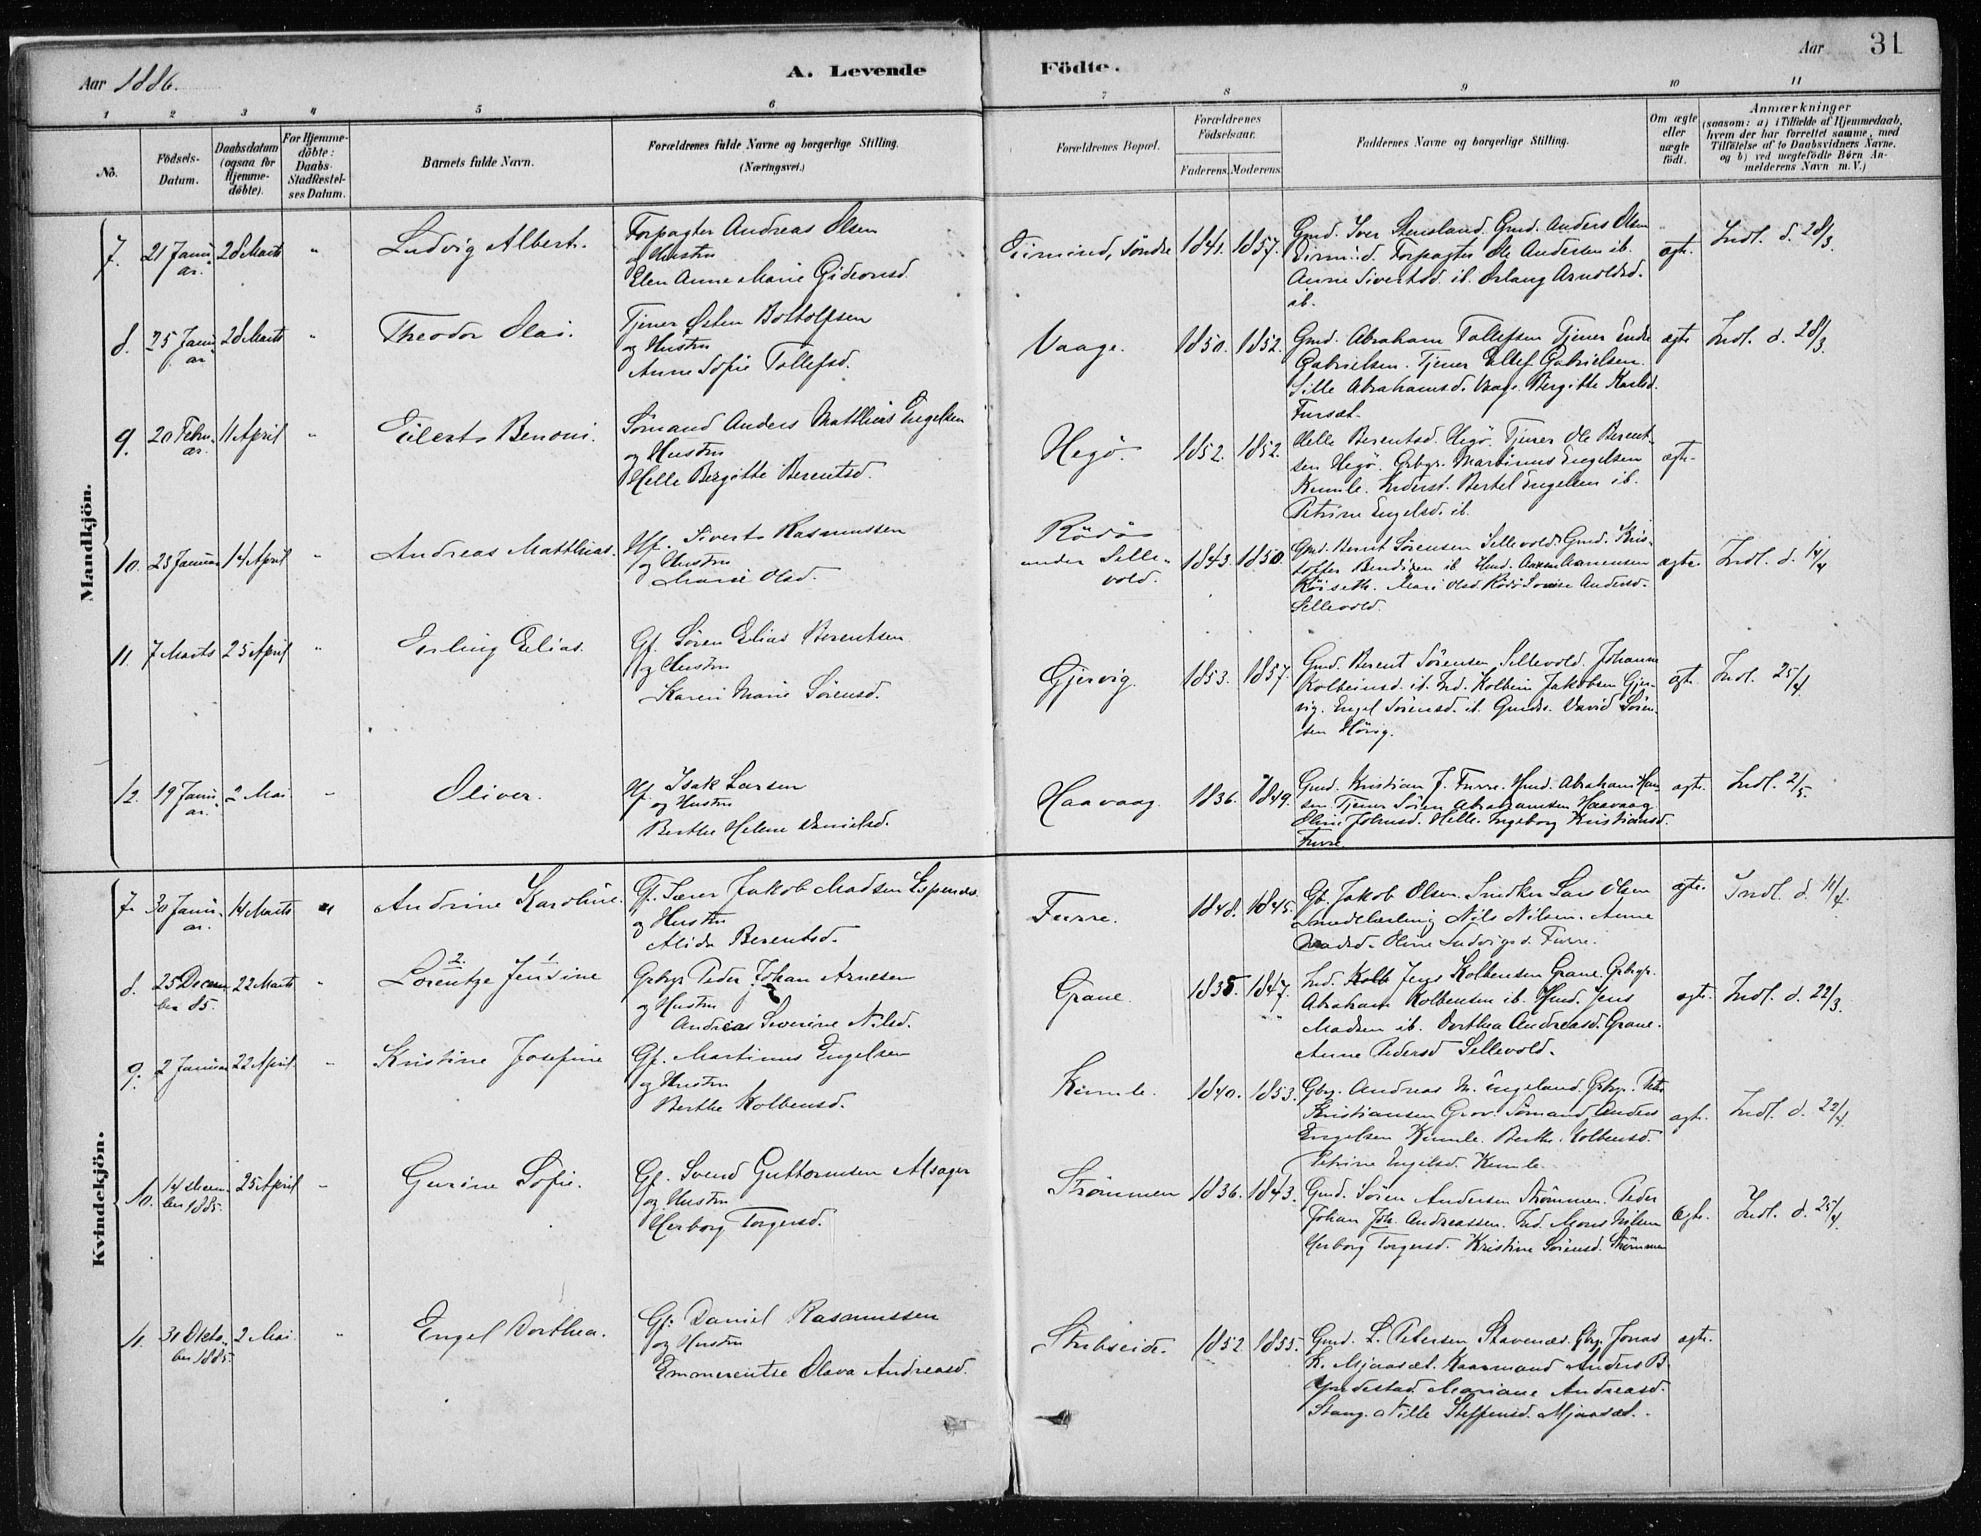 Aar 1886.
A. Levende
Födte.
Aar
31
1 2 3 4 5 6 7 8 9 10 11
No.
Födsels-
Datum.
Daabsdatum
(ogsaa for
Hjemme-
döbte).
For Hjemme-
döbte:
Daabs-
Stadfæstel-
ses Datum.
Barnets fulde Navn.
Forældrenes fulde Navne og borgerlige Stilling.
(Næringsvei.)
Forældrenes Bopæl.
Forældrenes
Fødselsaar.
Faderens. Moderens.
Faddernes Navne og borgerlige Stilling.
Om ægte
eller
uægte
födt.
Anmærkninger
(saasom: a) i Tilfælde af Hjemmedaab,
hvem der har forrettet samme, med
Tilföielse af to Daabsvidners Navne.
og b) ved uægtefödte Börn An-
melderens Navn m.V.)
Mandkjön.
7. 21 Janu-
ar. 28 Marts " Ludvig Albert.
Forpagter Andreas Olsen
og Hustru
Elen Anne Marie Gideonsd.
Eirmind, Søndre 1841. 1857.
Gmd. Iver Stensland. Gmd. Anders Olsen
Eirmind. Forpagter Ole Andersen ib.
Anne Sivertsd. ib. Erlang Arnoldsd.
ib.
ægte. Indl. d. 28/3.
8. 25 Janu-
ar 28 Marts " Theodor Olai.
Tjener Østen Bottolfsen
og Hustru
Anne Sofie Tollefsd.
Vaage. 1850. 1852.
Gmd. Abraham Tollefsen Tjener Endre
Gabrielsen. Tjener Ellef Gabrielsen.
Sille Abrahamsd. Vaage Bergitte Karlsd.
Fursæt.
ægte Indl. d. 28/3.
9. 20 Febru-
ar. 11 April " Eilert Benoni.
Sømand Anders Matthias Engelsen
og Hustru
Helle Bergitte Berentsd.
Hegö. 1852. 1852.
Helle Berentsd. Hegö. Tjener Ole Berent-
sen Hegö. Grbgr. Martinus Engelsen
Kumle. Inderst. Bertel Engelsen ib.
Petrine Engelsd. ib.
ægte.
10. 23 Januar 14 April " Andreas Matthias.
Hf. Sivert Rasmussen
og Hustru
Marie Olsd.
Rödö
under Selle-
vold. 1843. 1850.
Gmd. Bernt Sørensen Sellevold. Gmd. Kris-
toffer Bendixen ib. Hmd. Aamensen
Köiseth. Mari Olsd. Rödö Lovise Andersd.
Sellevold.
ægte. Indl. d. 14/4
11. 7 Marts 25 April " Erling Elias.
Gf. Sören Elias Berentsen
og Hustru
Karen Marie Sørensd.
Gjervig. 1853. 1857.
Gmd. Berent Sørensen Sellevold. Johanne
Kolbeinsd. ib. Ind. Kolbein Jakobsen Gjer-
vig. Engel Sørensd. ib. Gmds. David Sören-
sen Hövig.
ægte. Indl. 25/4.
12. 19 Janu-
ar. 2 Mai " Oliver.
Hf. Isak Larsen
og Hustru
Berthe Helene Danielsd.
Haavaag. 1836. 1849.
Gmd. Kristian J. Furre. Hmd. Abraham Han-
sen. Tjener Sören Abrahamsen Haavaag
Oline Johnsd. Helle. Ingeborg Kristiansd.
Furre.
ægte. Indl. 2/5.
Kvindekjön.
7. 30 Janu-
ar. 14 Marts " Andrine Karoline.
Gf. Jakob Madsen
og Hustru
Alida Berentsd.
Furre. 1848. 1845.
Gb. Jakob Olsen. Snedker Lars Olsen
Smedelærling Nils Nilsen. Anne
Madsd. Oline Ludvigsd. Furre.
ægte. Indl. d. 11/4.
8. 25 Decem-
ber 85. 22 Marts " 2. Lorentze 1. Jensine
Grbgr. Peder Johan Arnesen
og Hustru
Andrea Severine Nilsd.
Grane. 1835. 1847.
Ind. Kolb Jens Kolbensen Grane. Grbgr.
Abraham Kolbensen ib. Hmd. Jens
Madsen ib. Dorthea Andreasd. Grane.
Anne Pedersd Sellevold.
ægte. Indl. d. 22/3.
9. 2 Januar 22 April. " Kristine Josefine
Gf. Martinus Engelsen
og Hustru
Berthe Kolbensd.
Kumle. 1840. 1853.
Gbgr. Andreas M. Engeland. Grbgr. Peter
Kristiansen Grov. Sømand Anders
Engelsen Kumle. Berthe Kolbensd.
Petrine Engelsd. Kumle.
ægte. Indl. d. 22/4.
10. 14 Decem-
ber 1885. 25 April " Gurine Sofie.
Gf. Svend Guttormsen Alsager
og Hustru
Herborg Torgersd.
Strømmen 1836. 1843.
Gmd. Sören Andersen Strømmen. Peder
Johan Joh. Andreassen. Ind. Mons Nilsen
Herborg Torgersd. Kristine Sörensd. Strømmen
ægte. Indl. d. 25/4.
11. 31 Okto-
ber 1885. 2 Mai. " Engel Dorthea.
Gf. Daniel Rasmussen
og Hustru
Emmerentse Olava Andreasd.
Stubseid. 1852 1855.
Gmd. L. Petersen Stavenæs. Gbgr. Jonas
K. Mjaasæt. Kaarmand Anders B.
Yndestad Mariane Andreasd.
Stang. Nille Steffensd. Mjaasæt.
ægte.